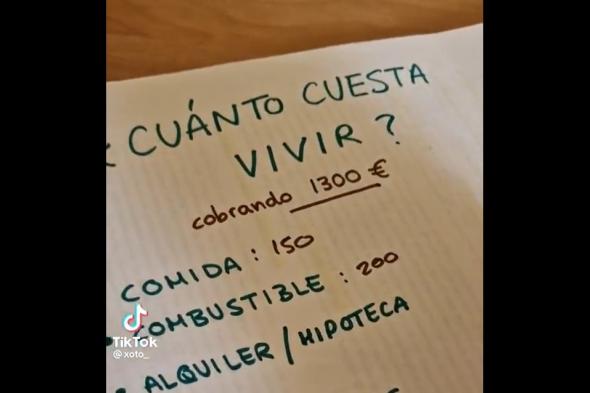 ¿CUÁNTO CUESTA
VIVIR?
cobrando 1300 €
COMIDA : 150
• COMBUSTIBLE : 200
• ALQUILER / HIPOTECA
TikTok
@xoto_